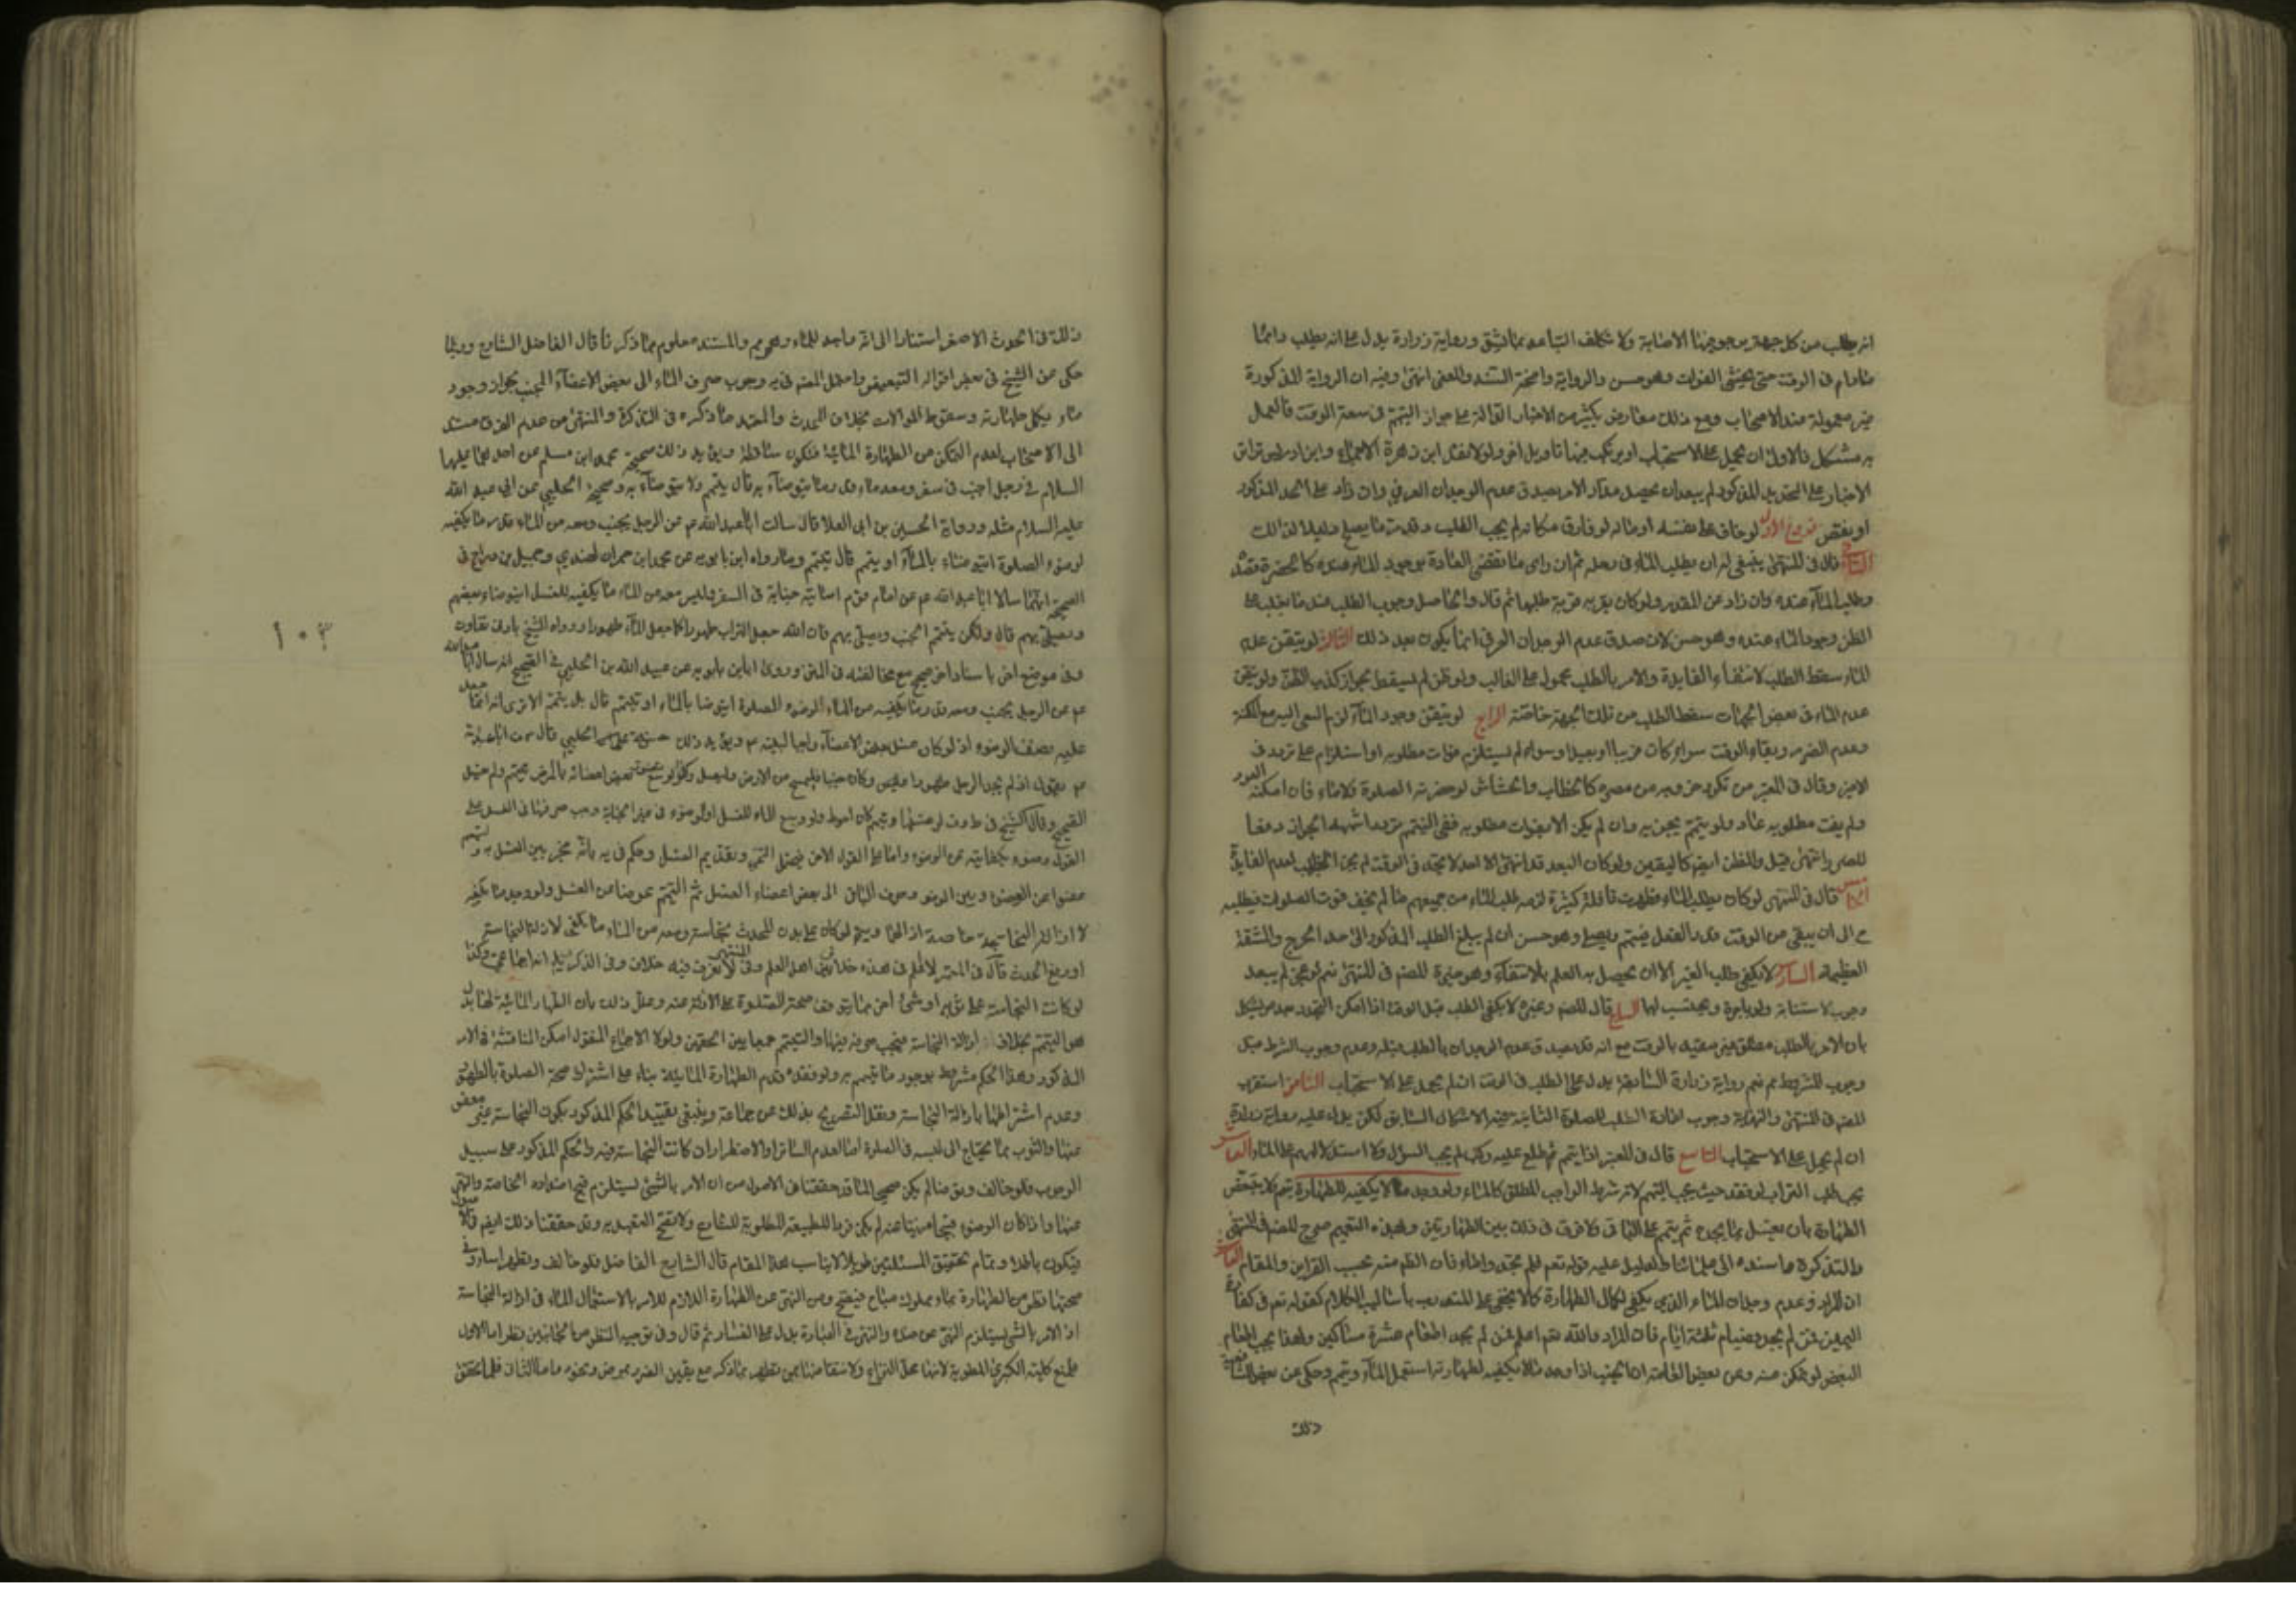 انه يطلب من كل جهة يرجو فيها الاصابة ولا يكلف التباعد بما يشق ورواية زرارة يدل على انه يطلب دائما
مادام فى الوقت حتى يخشى الفوات وهو حسن والرواية واضحة السند والمعنى انتهى وفيه ان الرواية المذكورة
غير معمولة عند الاصحاب ومع ذلك معارض بكثير من الاخبار الدالة على جواز التيمم فى سعة الوقت فالعمل
به مشكل فالاولى ان يحمل على الاستحباب او يرتكب فيها تاويل اخر ولولا نقل ابن زهرة الاجماع وابن ادريس تواتر
الاخبار على التحديد المذكور لم يبعد ان يحصل مدار الامر بصدق عدم الوجدان العرفى وان زاد على الحد المذكور
او نقص فروع الاول لو خاف على نفسه او ماله لو فارق مكانه لم يجب الطلب وقد مر ما يصلح دليلا لذلك
الثانى قال فى المنتهى ينبغى له ان يطلب الماء فى رحله ثم ان راى ما يقتضى العادة بوجود الماء عنده كالخضرة قصده
وطلب الماء عنده وان زاد عن المقدر ولو كان بقربه قرية طلبها ثم قال والحاصل وجوب الطلب عند ما يغلب على
الظن وجود الماء عنده وهو حسن لان صدق عدم الوجدان العرفى انما يكون بعد ذلك الثالث لو تيقن عدم
الماء سقط الطلب لانتفاء الفايدة والامر بالطلب محمول على الغالب ولو ظن لم يسقط لجواز كذب الظن ولو تيقن
عدم الماء فى بعض الجهات سقط الطلب من تلك الجهة خاصة الرابع لو تيقن وجود الماء لزم السعى اليه مع المكنة
وعدم الضرر وبقاء الوقت سواء كان قريبا او بعيدا وسواء لم يستلزم فوات مطلوبه او استلزام على تردد فى
الاخير وقال فى المعتبر من تكرر خروجه من مصره كالحطاب والحشاش لو حضرته الصلوة ولا ماء فان امكنه العود
ولم يفت مطلوبه عاد ولو تيمم لم يجزيه وان لم يكن الا بفوات مطلوبه ففى التيمم تردد اشبهه الجواز دفعا
للضرر انتهى قيل والظن ايضا كاليقين ولو كان البعد قد انتهى الا احد لا يجده فى الوقت لم يجز الطلب لعدم الفايدة
الخامس قال فى المنتهى لو كان يطلب الماء فظهرت قافلة كثيرة لزمه طلب الماء من جميعهم ما لم يخف فوت الصلوات فيطلبه
ح الى ان يبقى من الوقت قدر الفعل فيتيمم ويصلى وهو حسن ان لم يبلغ الطلب المذكور الى حد الحرج والمشقة
العظيمة السادس لا يكفى طلب الغير الا ان يحصل به العلم بالانتفاء وهو خيرة المصنف فى المنتهى نعم لو عجز لم يبعد
وجوب الاستنابة ولو باجرة ويحتسب لهما السابع قال المصنف وغيره لا يكفى الطلب قبل الوقت اذا امكن التجدد بعده ويشكل
بان الامر بالطلب مطلق غير مقيد بالوقت مع انه قد يصدق عدم الوجدان بالطلب قبله وعدم وجوب الشرط قبل
وجوب المشروط مم نعم رواية زرارة السابقة يدل على الطلب فى الوقت ان لم يحمل على الاستحباب الثامن استقرب
المصنف فى المنتهى والنهاية وجوب اعادة الطلب للصلوة الثانية وفيه الاشكال السابق لكن يدل عليه رواية زرارة
ان لم يحمل على الاستحباب التاسع قال فى المعتبر اذا تيمم ثم طلع عليه ركب لم يجب السؤال ولا استدلالهم على الماء العاشر
يجب طلب التراب لو فقد حيث يجب التيمم لانه شرط الواجب المطلق كالماء ولو وجد ما لا يكفيه للطهارة تيمم ولا يتبعض
الطهارة بان يغسل بما يجده ثم يتيمم على الباقى ولا فرق فى ذلك بين الطهارتين وبهذه التعميم صرح المصنف فى المنتهى
والتذكرة واسنده الى علمائنا والدليل عليه قوله تعم فلم تجدوا ماء فان الظ منه بحسب القراين والمقام
ان المراد فعدم وجدان الماء الذى يكفى لكمال الطهارة كما لا يخفى على المتدرب باساليب الكلام كقوله تعم فى كفارة
اليمين فمن لم يجد فصيام ثلثة ايام فان المراد والله تعم اعلم فمن لم يجد اطعام عشرة مساكين ولهذا يجب اطعام
البعض لو تمكن منه وعن بعض العامة ان الجنب اذا وجد ما لا يكفيه لطهارته استعمل الماء وتيمم وحكى عن بعض الشافعية
ذلك
ذلك فى الحدث الاصغر استنادا الى انه واجد للماء وهو مم والمستند معلوم مما ذكرنا قال الفاضل الشارح وربما
حكى عن الشيخ فى بعض اقواله التبعيض واحتمل المصنف فى يه وجوب صرف الماء الى بعض الاعضاء الجنب لجواز وجود
ماء يكمل طهارته وسقوط الموالات بخلاف المحدث والمعتمد ما ذكره فى التذكرة والمنتهى من عدم الفرق مسندا
الى الاصحاب لعدم التمكن من الطهارة المائية فيكون ساقطة ويؤيد ذلك صحيحة محمد ابن مسلم عن احدهما عليهما
السلام فى رجل اجنب فى سفر ومعه ماء قدر ما يتوضأ به قال يتيمم ولا يتوضأ به وصحيحة الحلبى عن ابى عبد الله
عليه السلام مثله ورواية الحسين بن ابى العلا قال سالت ابا عبد الله عم عن الرجل يجنب ومعه من الماء قدر ما يكفيه
لوضوء الصلوة ايتوضاء بالماء او يتيمم قال يتيمم وما رواه ابن بابويه عن محمد ابن حمران النهدى وجميل بن دراج فى
الصحيح انهما سالا ابا عبد الله عم عن امام قوم اصابته جنابة فى السفر وليس معه من الماء ما يكفيه للغسل ايتوضاء بعضهم
ويصلى بهم قال ولكن يتيمم الجنب ويصلى بهم فان الله جعل التراب طهورا كما جعل الماء طهورا ورواه الشيخ بادنى تفاوت
وفى موضع اخر باسناد اخر صحيح مع مخالفته فى المتن وروى ابن بابويه عن عبيد الله بن الحلبى فى الصحيح انه سال ابا عبد الله
عم عن الرجل يجنب ومعه قدر ما يكفيه من الماء لوضوء الصلوة ايتوضا بالماء او يتيمم قال بل يتيمم الا ترى انه انما جعل
عليه نصف الوضوء اذ لو كان غسل بعض الاعضاء واجبا لبينه عم ويؤيد ذلك حسنة الحلبى قال سمعت ابا عبد الله
عم يقول اذا لم يجد الرجل طهورا وكان جنبا فليمسح من الارض وليصل بعض اعضائه بالمرض تيمم ولم يغسل
الصحيح وقال الشيخ فى ط وف لو غسلها وتيمم كان احوط ولو وسع الماء للغسل او لوضوء فى غير الجنابة وجب صرفها فى الغسل على
القول بكفايته عن الوضوء واما على القول الاخر فيحتمل التخيير وتقديم الغسل وحكم فى يه بانه مخير بين الغسل به وتيمم
عوضا عن الوضوء وبين الوضوء وصرف الباقى الى بعض اعضاء الغسل ثم التيمم عوضا عن الغسل ولو وجد ما يكفيه
لازالة النجاسة خاصة ازالها ويتيمم لو كان على بدن المحدث نجاسة ومعه من الماء ما يكفى لازالة النجاسة
او رفع الحدث قال فى المعتبر لا اعلم فى هذه خلافا بين اهل العلم وفى المنتهى لا نعرف فيه خلاف وفى الذكرى انه اجماعى وكذا
لو كانت النجاسة على ثوبه او شئ اخر مما يتوقف صحة الصلوة على ازالته عنه وعلل ذلك بان الطهارة المائية لها بدل
هو التيمم بخلاف ازالة النجاسة فيجب صرفه فيها والتيمم جمعا بين الحقين ولولا الاجماع المنقول امكن المناقشة فى الامر
المذكور وهذا الحكم مشروط بوجود ما يتيمم به ولو فقده قدم الطهارة المائية بناء على اشتراط صحة الصلوة بالطهور
وعدم اشتراطها بازالة النجاسة ونقل التصريح بذلك عن جماعة وينبغى تقييد الحكم المذكور بكون النجاسة غير معفو
عنها والثوب مما يحتاج الى لبسه فى الصلوة اما لعدم الساتر او الاضطرار ان كانت النجاسة فيه والحكم المذكور على سبيل
الوجوب فلو خالف وتوضا لم يكن صحيحا لما قد حققنا فى الاصول من ان الامر بالشئ يستلزم قبح اضداده الخاصة والنهى
عنها واذا كان الوضوء قبيحا منهيا عنه لم يكن فردا للطبيعة المطلوبة للشارع ولا تصح التعبد به وقد حققنا ذلك ايضا
فيكون باطلا وتمام تحقيق المسئلتين طويل لا يناسب هذا المقام قال الشارح الفاضل فلو خالف وتطهر اساء وفى
صحتها نظر من الطهارة بماء مملوك مباح فيصح ومن النهى عن الطهارة اللازم للامر بالاستعمال الماء فى ازالة النجاسة
اذ الامر بالشئ يستلزم النهى عن ضده والنهى فى العبادة يدل على الفساد ثم قال وفى توجيه النظر من الجانبين نظر اما الاول
فلمنع كلية الكبرى المطوية لانها محل النزاع ولانتقاضها بمن تطهر بما ذكر مع يقين الضرر بمرض ونحوه واما الثانى فلما تحقق
١٠٣